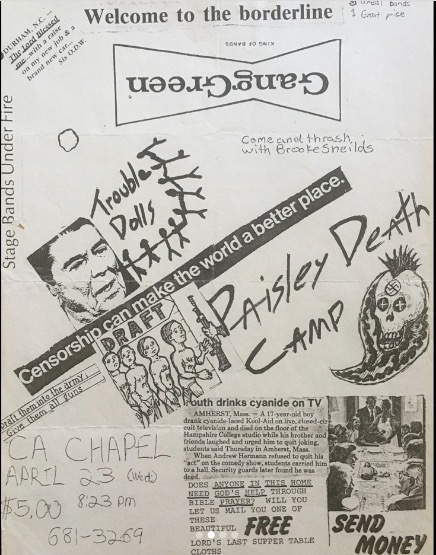 Welcome to the borderline
small bands
1 Great price
DURHAM, N.C. —
The Lord Blessed
me with a raise
on my new job & a
brand new car...
Sis O.D.W.
KING OF BANDS
GangGreen
Come and thrash
with Brooke Sheilds
Stage Bands Under Fire
Trouble
Dolls
Censorship can make the world a better place.
Paisley Death
Camp
DRAFT
Draft them into the army,
Give them all guns
outh drinks cyanide on TV
AMHERST, Mass. — A 17-year-old boy
drank cyanide-laced Kool-Aid on live, closed-cir-
cuit television and died on the floor of the
Hampshire College studio while his brother and
friends laughed and urged him to quit joking,
students said Thursday in Amherst, Mass.
When Andrew Hermann refused to quit his
"act" on the comedy show, students carried him
to a hall. Security guards later found he was
dead.
DOES ANYONE IN THIS HOME
NEED GOD'S HELP THROUGH
BIBLE PRAYER? WILL YOU
LET US MAIL YOU ONE OF
THESE
BEAUTIFUL FREE
LORD'S LAST SUPPER TABLE
CLOTHS
SEND
MONEY
CA CHAPEL
APRIL 23 (Wed)
$5.00 8:23 pm
681-3269